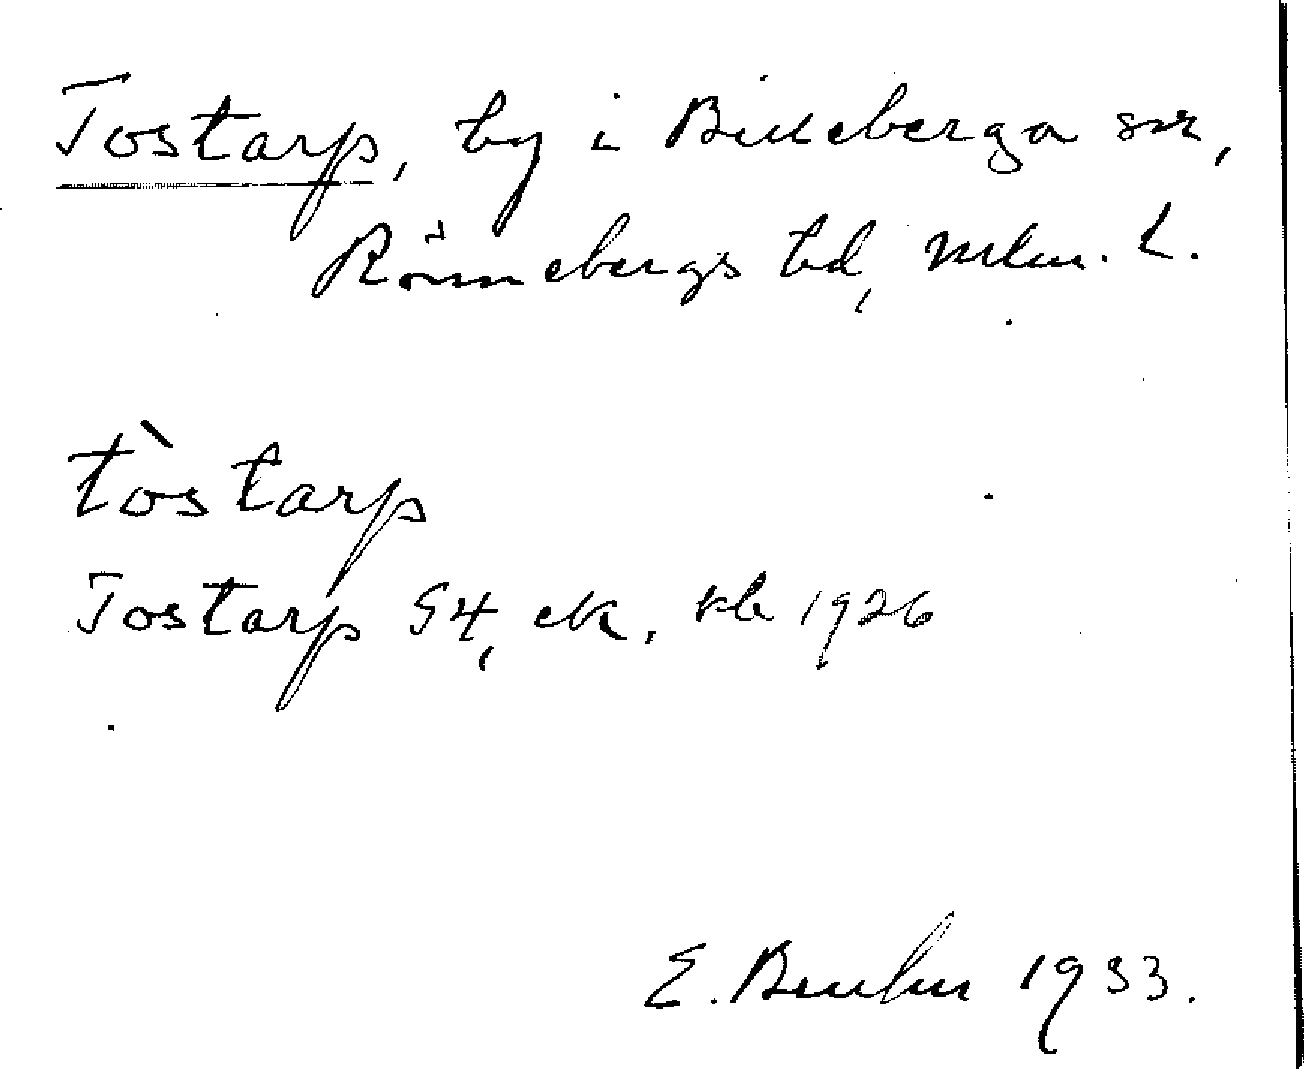 Tostarp, by i Billeberga sn,
Rönnebergs hd, Mlm. L.
tòstarp
Tostarp G4, ek. kb 1926
E. 1933.